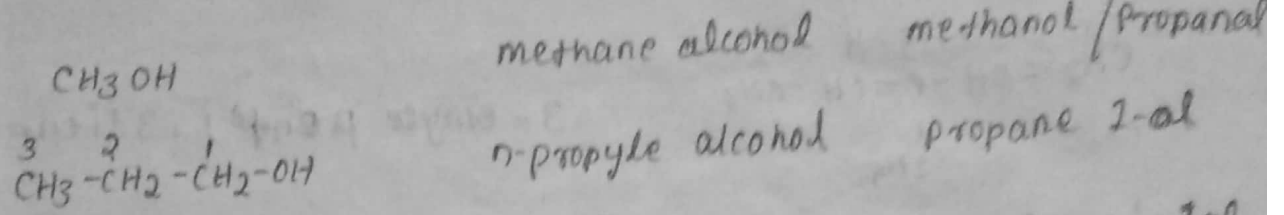 CH3 OH methane alcohol methanol / Propanal
3 2 1
CH3 - CH2 - CH2 - OH n-propyle alcohol propane 1-ol